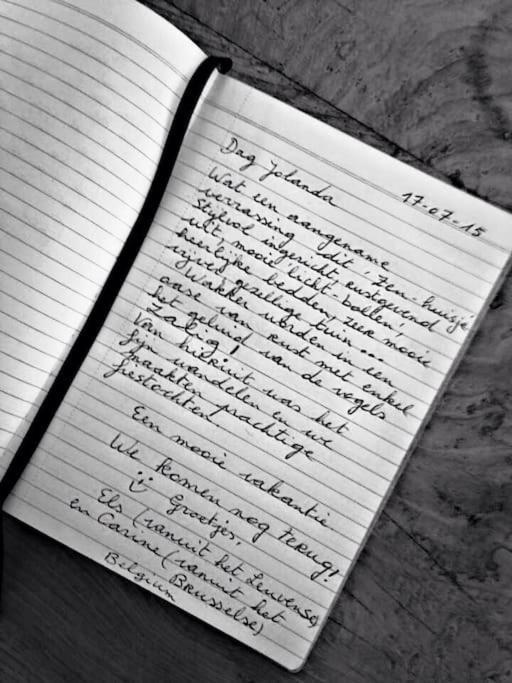 17-07-15
Dag Yolanda
Wat een aangename
verrassing dit 'Zen-huisje'
stijlvol ingericht, rustgevend
wit, mooie licht-bollen!
heerlijke bedden, zeer mooie
vrije gezellige tuin...
Wakker worden in een
oase van rust met enkel
het geluid van de vogels
Zalig!
Van hieruit was het
fijn wandelen en we
maakten prachtige
fietstochten.
Een mooie vakantie
We komen nog terug!
Groetjes.
Els (vanuit het Leuvense)
en Carine (vanuit het
Brusselse)
Belgium